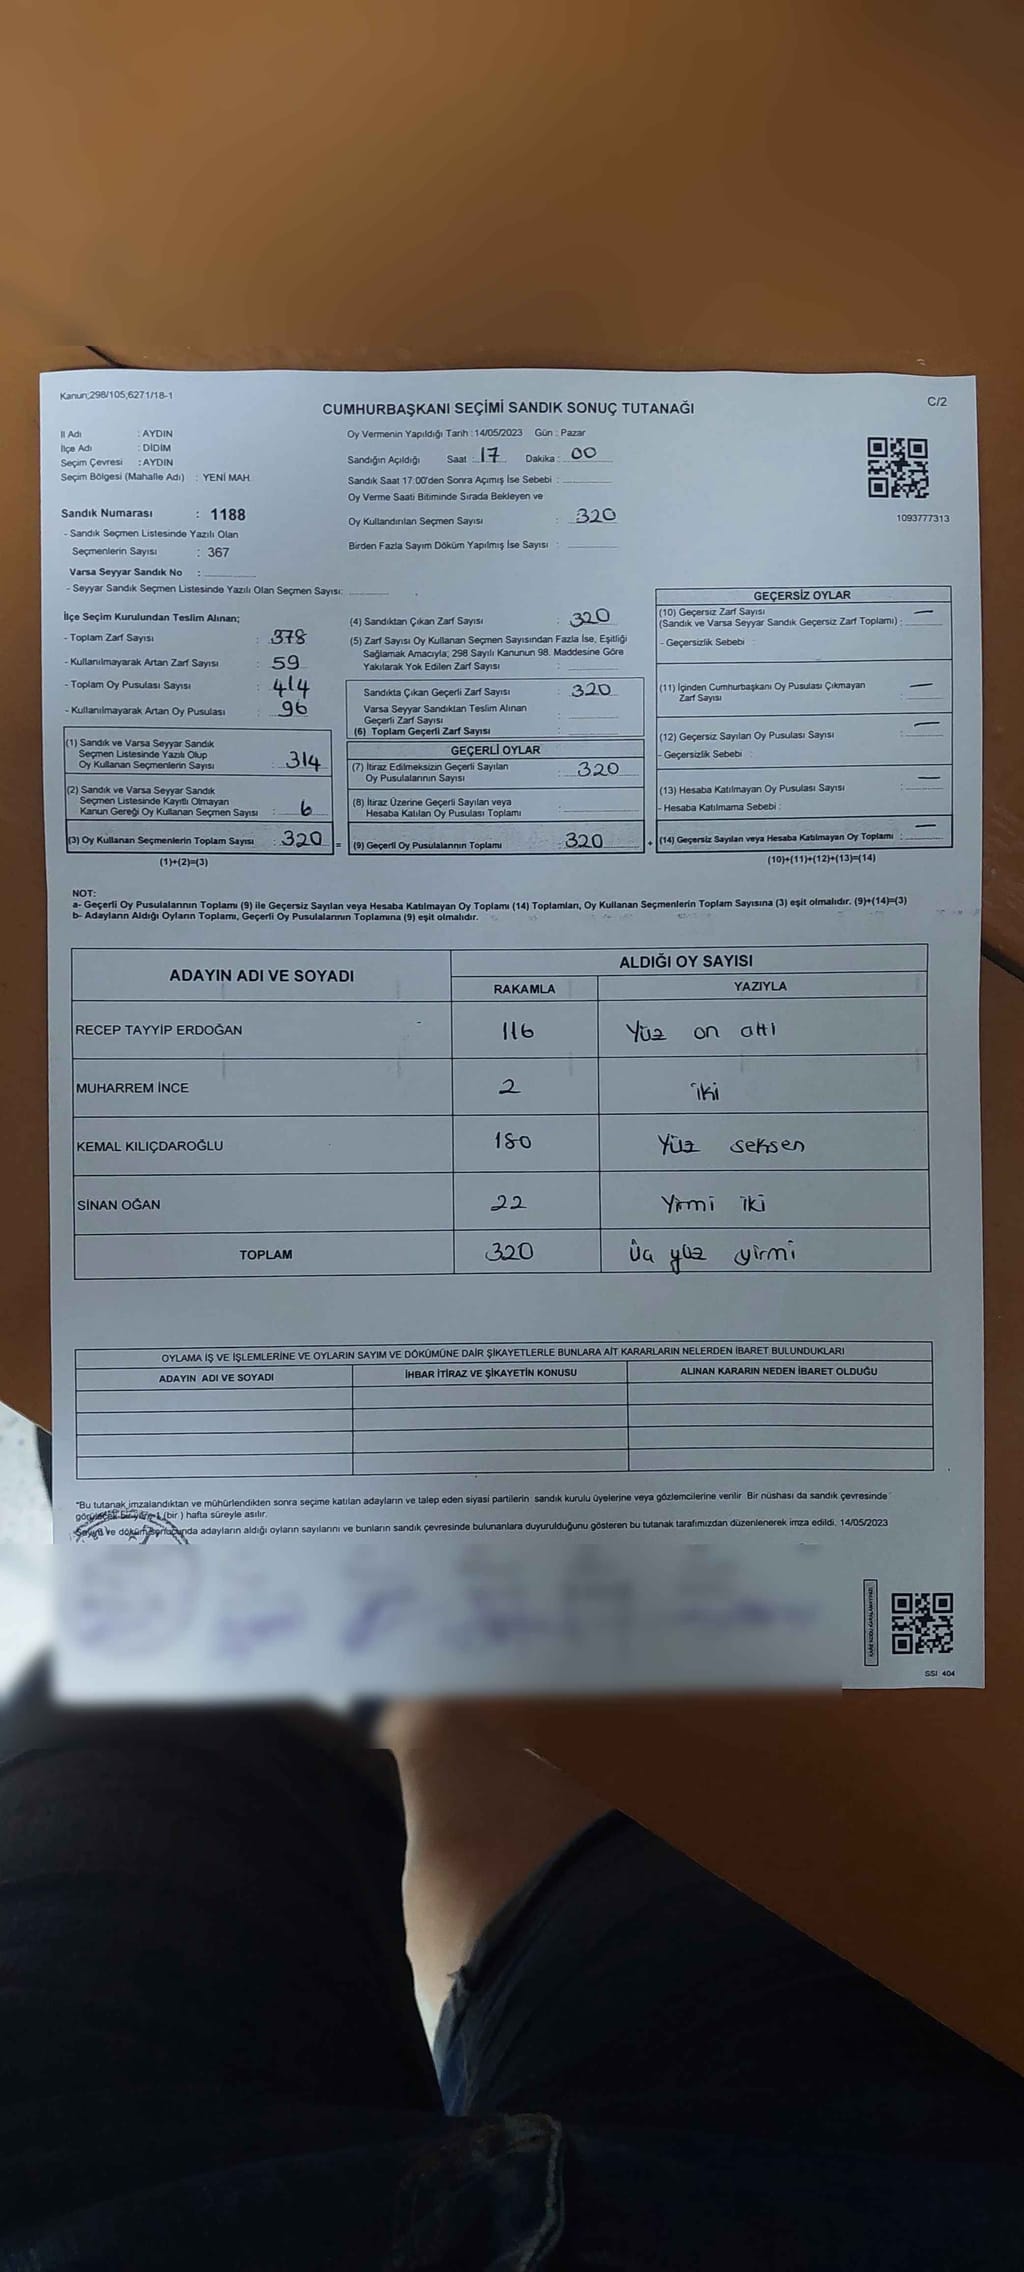 Kanun;298/105;6271/18-1
C/2
CUMHURBAŞKANI SEÇİMİ SANDIK SONUÇ TUTANAĞI
İl Adı : AYDIN
İlçe Adı : DİDİM
Seçim Çevresi : AYDIN
Seçim Bölgesi (Mahalle Adı) : YENİ MAH.
Oy Vermenin Yapıldığı Tarih : 14/05/2023 Gün : Pazar
Sandığın Açıldığı Saat : 17 Dakika : 00
Sandık Saat 17.00'den Sonra Açımış İse Sebebi :
Oy Verme Saati Bitiminde Sırada Bekleyen ve
Oy Kullandırılan Seçmen Sayısı : 320
Birden Fazla Sayım Döküm Yapılmış İse Sayısı :
1093777313
Sandık Numarası : 1188
- Sandık Seçmen Listesinde Yazılı Olan
Seçmenlerin Sayısı : 367
Varsa Seyyar Sandık No :
- Seyyar Sandık Seçmen Listesinde Yazılı Olan Seçmen Sayısı:
İlçe Seçim Kurulundan Teslim Alınan;
- Toplam Zarf Sayısı : 378
- Kullanılmayarak Artan Zarf Sayısı : 59
- Toplam Oy Pusulası Sayısı : 414
- Kullanılmayarak Artan Oy Pusulası : 96
(1) Sandık ve Varsa Seyyar Sandık
Seçmen Listesinde Yazılı Olup
Oy Kullanan Seçmenlerin Sayısı : 314
(2) Sandık ve Varsa Seyyar Sandık
Seçmen Listesinde Kayıtlı Olmayan
Kanun Gereği Oy Kullanan Seçmen Sayısı : 6
(3) Oy Kullanan Seçmenlerin Toplam Sayısı : 320 =
(1)+(2)=(3)
(4) Sandıktan Çıkan Zarf Sayısı : 320
(5) Zarf Sayısı Oy Kullanan Seçmen Sayısından Fazla İse, Eşitliği
Sağlamak Amacıyla; 298 Sayılı Kanunun 98. Maddesine Göre
Yakılarak Yok Edilen Zarf Sayısı :
Sandıkta Çıkan Geçerli Zarf Sayısı : 320
Varsa Seyyar Sandıktan Teslim Alınan
Geçerli Zarf Sayısı :
(6) Toplam Geçerli Zarf Sayısı :
GEÇERLİ OYLAR
(7) İtiraz Edilmeksizin Geçerli Sayılan
Oy Pusulalarının Sayısı : 320
(8) İtiraz Üzerine Geçerli Sayılan veya
Hesaba Katılan Oy Pusulası Toplamı :
(9) Geçerli Oy Pusulalarının Toplamı : 320 +
GEÇERSİZ OYLAR
(10) Geçersiz Zarf Sayısı
(Sandık ve Varsa Seyyar Sandık Geçersiz Zarf Toplamı) : —
- Geçersizlik Sebebi :
(11) İçinden Cumhurbaşkanı Oy Pusulası Çıkmayan
Zarf Sayısı : —
(12) Geçersiz Sayılan Oy Pusulası Sayısı : —
- Geçersizlik Sebebi :
(13) Hesaba Katılmayan Oy Pusulası Sayısı : —
- Hesaba Katılmama Sebebi :
(14) Geçersiz Sayılan veya Hesaba Katılmayan Oy Toplamı : —
(10)+(11)+(12)+(13)=(14)
NOT:
a- Geçerli Oy Pusulalarının Toplamı (9) ile Geçersiz Sayılan veya Hesaba Katılmayan Oy Toplamı (14) Toplamları, Oy Kullanan Seçmenlerin Toplam Sayısına (3) eşit olmalıdır. (9)+(14)=(3)
b- Adayların Aldığı Oyların Toplamı, Geçerli Oy Pusulalarının Toplamına (9) eşit olmalıdır.
ADAYIN ADI VE SOYADI ALDIĞI OY SAYISI
RAKAMLA YAZIYLA
RECEP TAYYİP ERDOĞAN 116 Yüz on altı
MUHARREM İNCE 2 iki
KEMAL KILIÇDAROĞLU 180 Yüz seksen
SİNAN OĞAN 22 Yirmi iki
TOPLAM 320 Üç yüz yirmi
OYLAMA İŞ VE İŞLEMLERİNE VE OYLARIN SAYIM VE DÖKÜMÜNE DAİR ŞİKAYETLERLE BUNLARA AİT KARARLARIN NELERDEN İBARET BULUNDUKLARI
ADAYIN ADI VE SOYADI İHBAR İTİRAZ VE ŞİKAYETİN KONUSU ALINAN KARARIN NEDEN İBARET OLDUĞU
*Bu tutanak imzalandıktan ve mühürlendikten sonra seçime katılan adayların ve talep eden siyasi partilerin sandık kurulu üyelerine veya gözlemcilerine verilir. Bir nüshası da sandık çevresinde
görülecek bir yere 1 (bir) hafta süreyle asılır.
Sayım ve döküm sonucunda adayların aldığı oyların sayılarını ve bunların sandık çevresinde bulunanlara duyurulduğunu gösteren bu tutanak tarafımızdan düzenlenerek imza edildi. 14/05/2023
SSI 404